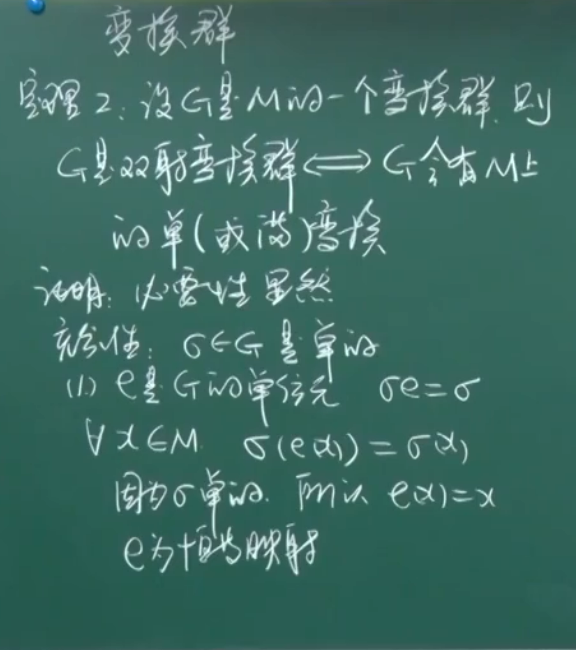 变换群
定理2:设G是M的一个变换群,则
G是双射变换群⟺G含有M上
的单(或满)变换
证明:必要性显然
充分性:σ∈G是单的
(1) e是G的单位元 σe=σ
∀x∈M σ(e(x))=σ(x)
因为σ单的.所以e(x)=x
e为恒等映射